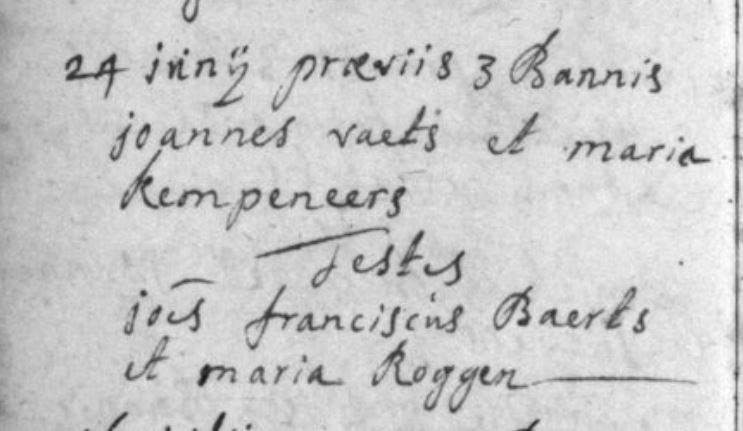 24 junÿ præviis 3 Bannis
joannes vaets et maria
kempeneers
Testes
joēs franciscus Baerts
et maria Roggen